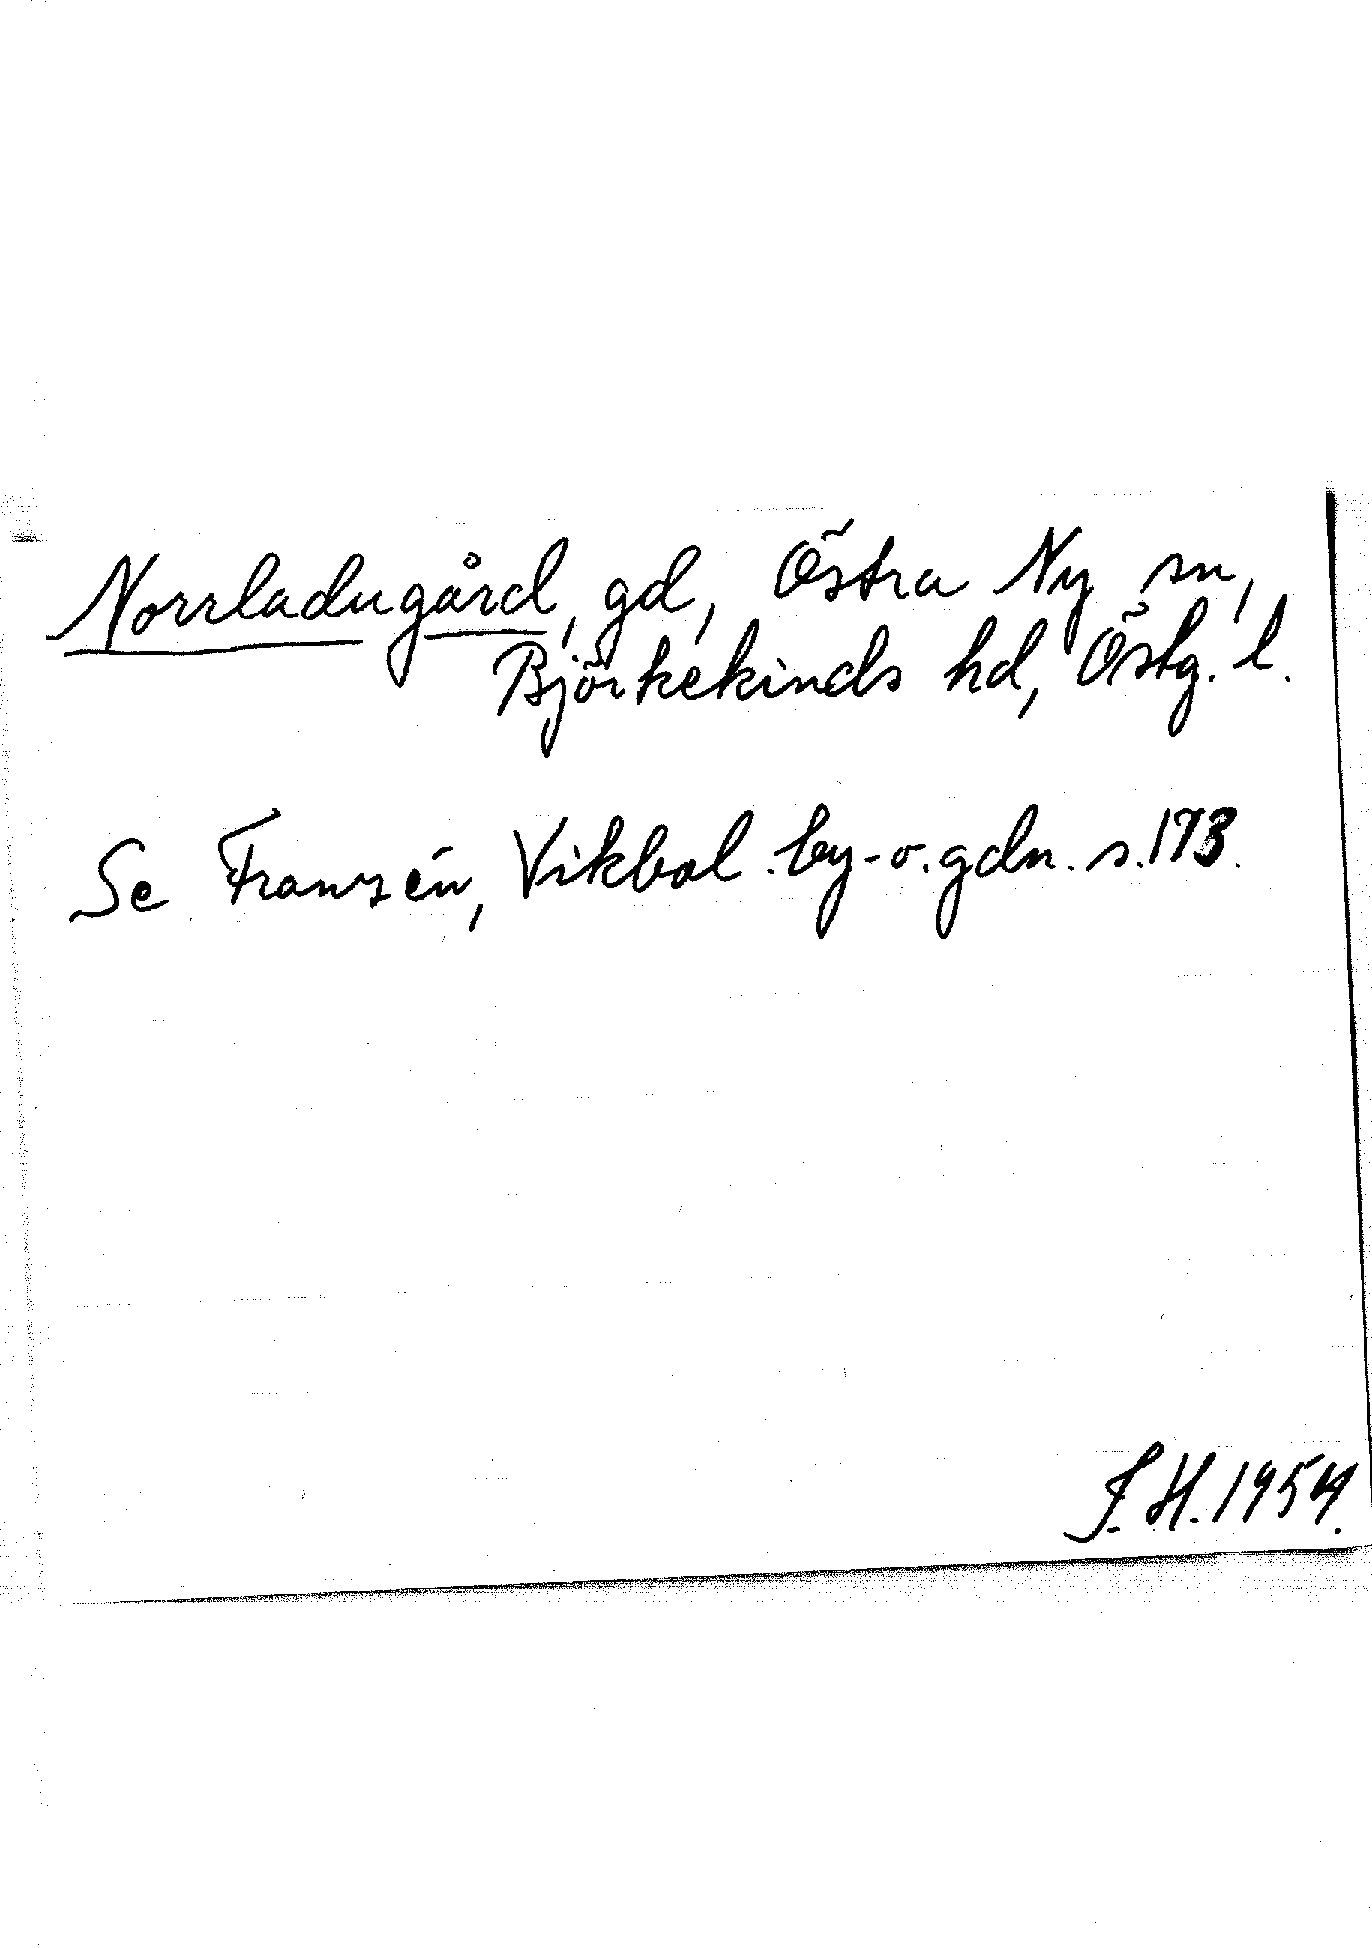 Norrladugård, gd, Östra Ny sn,
Björkekinds hd, Östg. l.
Se Franzén, Vikbol. by- o. gdn. s. 173.
J. H. 1954.